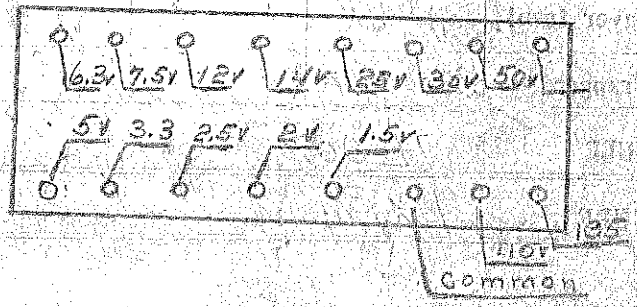 6.3v 7.5v 12v 14v 25v 30v 50v
5v 3.3 2.5v 2v 1.5v
125
110v
Common